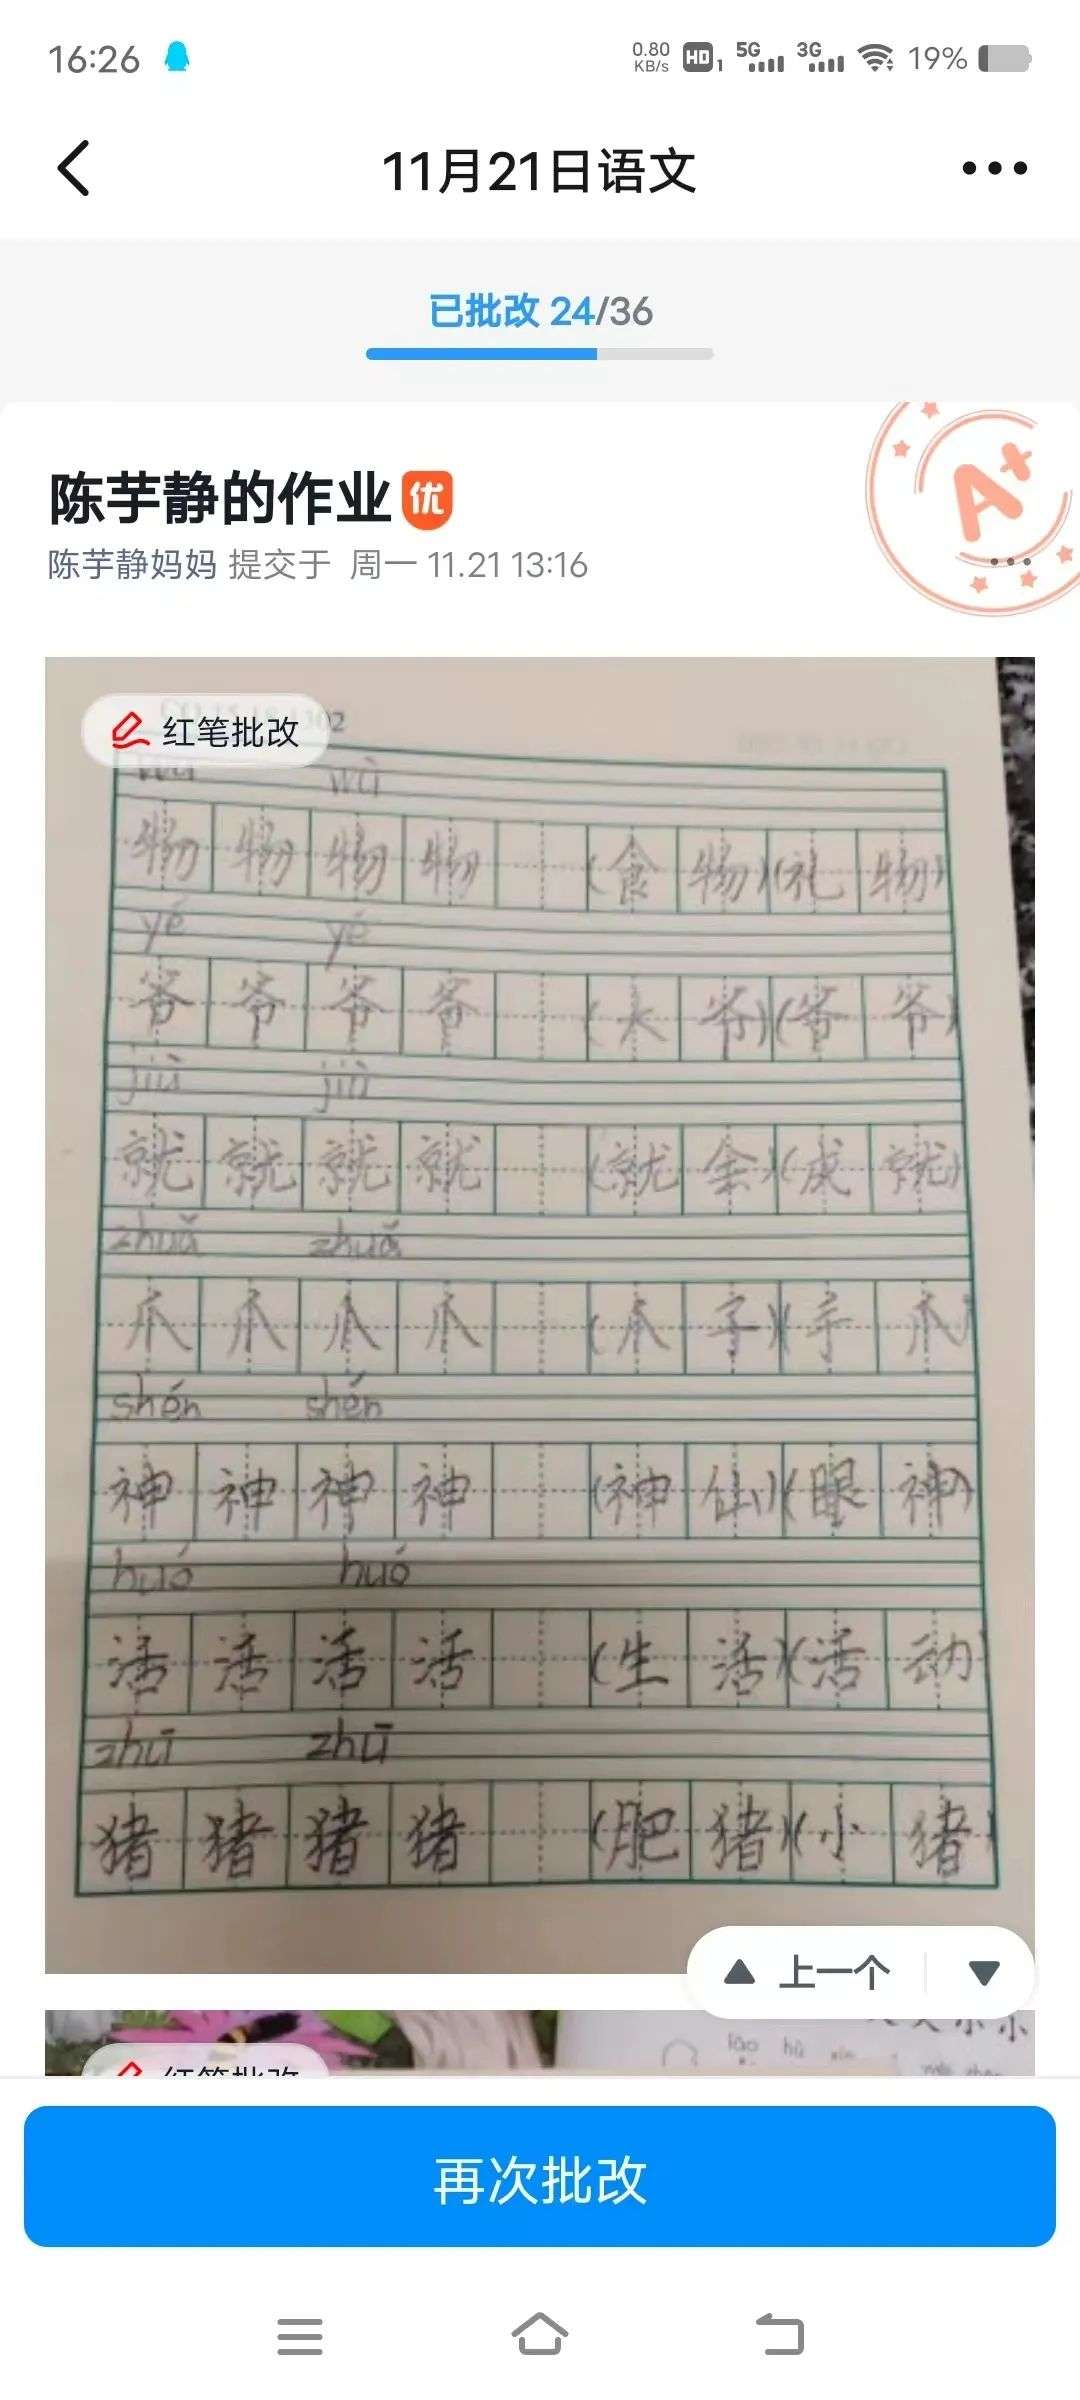 16:26 0.80 KB/s HD 1 5G 3G 19%
11月21日语文
已批改 24/36
陈芋静的作业 优
A+
陈芋静妈妈 提交于 周一 11.21 13:16
红笔批改
wù wù
物 物 物 物 (食 物)(礼 物)
yé yé
爷 爷 爷 爷 (大 爷)(爷 爷)
jiù jiù
就 就 就 就 (就 餐)(成 就)
zhuǎ zhuǎ
爪 爪 爪 爪 (爪 子)(手 爪)
shén shén
神 神 神 神 (神 仙)(眼 神)
huó huó
活 活 活 活 (生 活)(活 动
zhū zhū
猪 猪 猪 猪 (肥 猪)(小 猪)
上一个
lǎo hǔ
红笔批改
再次批改